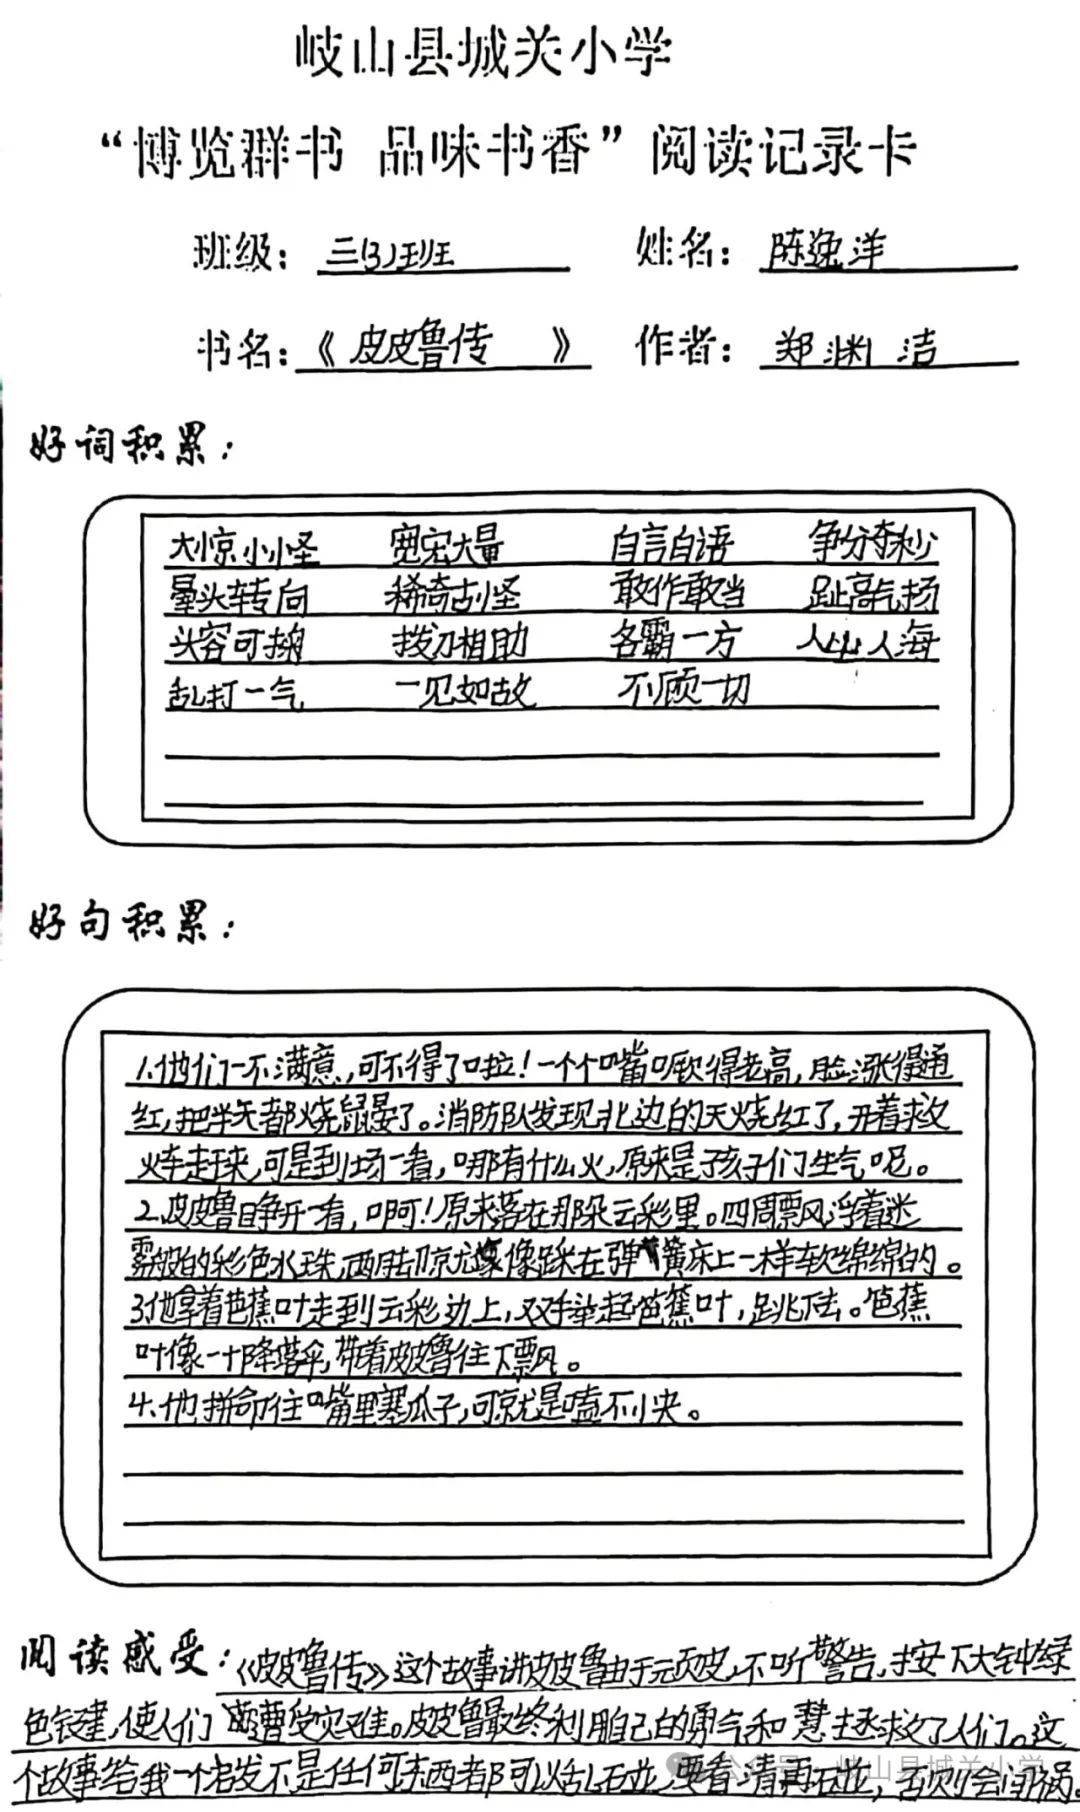 岐山县城关小学
“博览群书 品味书香”阅读记录卡
班级：三(3)班 姓名：陈逸洋
书名：《皮皮鲁传》 作者：郑渊洁
好词积累：
大惊小怪 宽宏大量 自言自语 争分夺秒
晕头转向 稀奇古怪 敢作敢当 趾高气扬
笑容可掬 拔刀相助 各霸一方 人山人海
乱打一气 一见如故 不顾一切
好句积累：
1.他们一不满意，可不得了啦！一个个嘴噘得老高，脸涨得通
红，把半天都烧晕了。消防队发现北边的天烧红了，开着救火
火车赶来，可是到场一看，哪有什么火，原来是孩子们生气呢。
2.皮皮鲁睁开一看，啊！原来落在那朵云彩里。四周飘浮着迷
雾般的彩色水珠，两脚就像踩在弹簧床上一样软绵绵的。
3.他拿着芭蕉叶走到云彩边上，双手举起芭蕉叶，跳下去。芭蕉
叶像一个降落伞，带着皮皮鲁往下飘。
4.他拼命往嘴里塞瓜子，可就是嗑不快。
阅读感受：《皮皮鲁传》这个故事讲皮皮鲁由于顽皮，不听警告，按下大钟绿
色键，使人们遭受灾难。皮皮鲁最终利用自己的勇气和慧拯救了人们。这
个故事给我一个启发不是任何东西都可以乱碰，要看清再碰，否则会闯祸。
公众号·岐山县城关小学